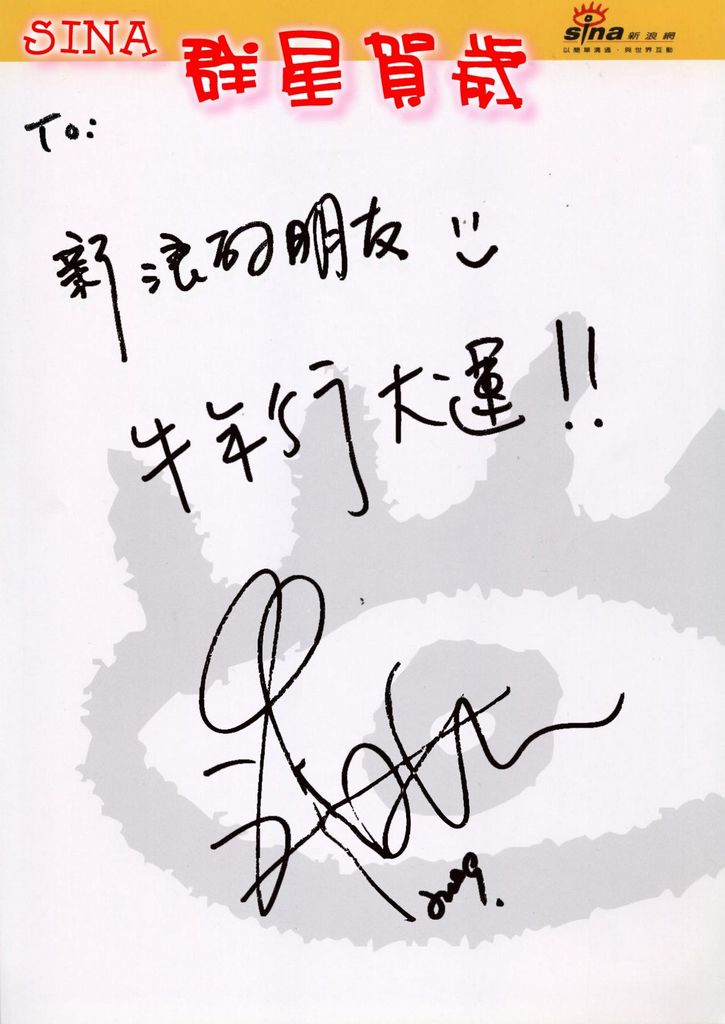 SINA 群星賀歲
sina 新浪網
以簡單溝通‧與世界互動
To:
新浪的朋友
牛年行大運!!
2009.